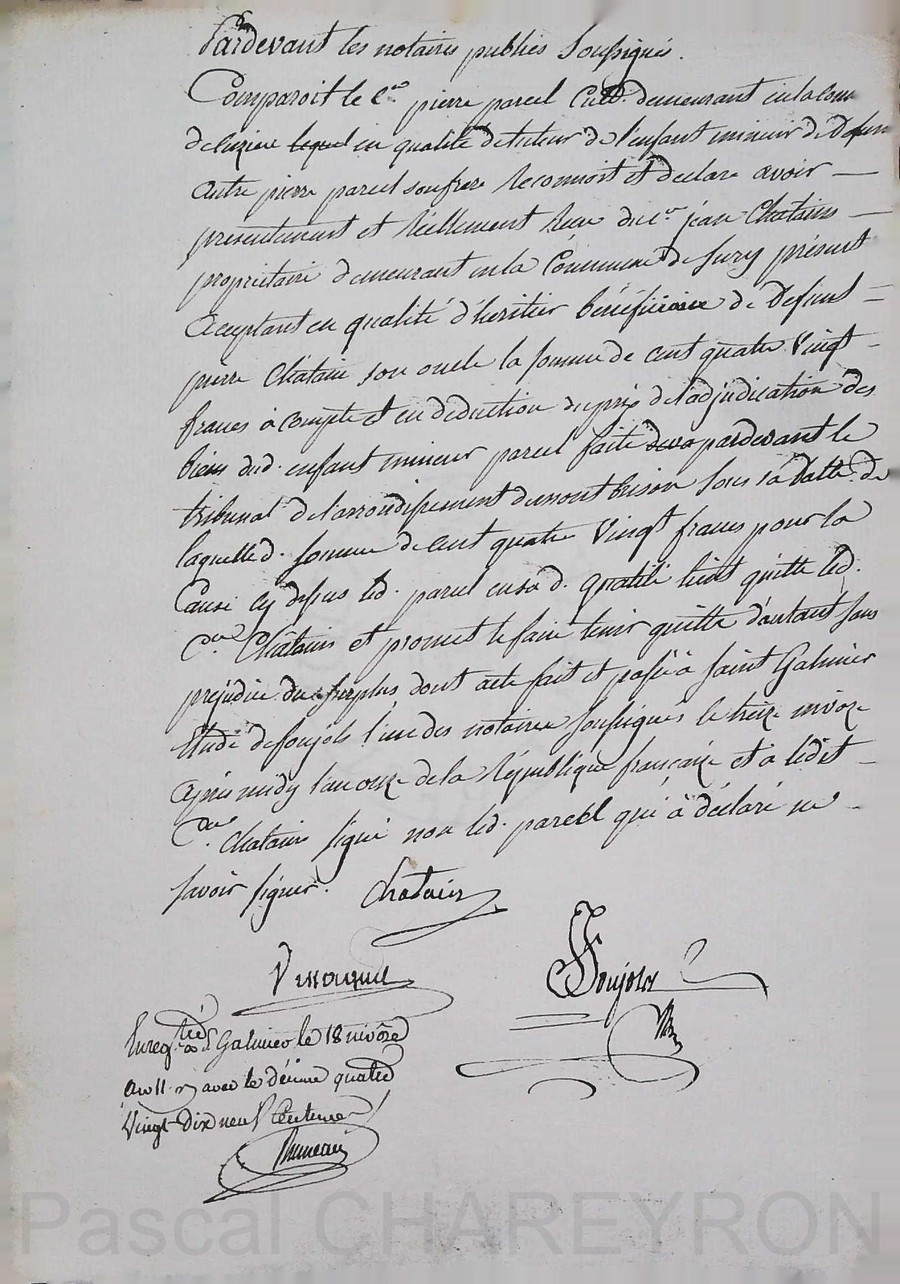 Pardevant les notaires publics soussignés.
Comparoit le C.en pierre parcel Cult. demeurant en la com
de luzieu lequel en qualité de tuteur de l'enfant mineur de Defun
autre pierre parcel soufrere reconnoit et declare avoir —
presentement et réellement reçu du C.en jean Chatains —
propriétaire demeurant en la Commune de Sury présent
Aceptant en qualité d'heritier bénéficiaire de Defunt =
pierre Châtain son oncle la somme de cent quatre Vingt -
francs à compte et en déduction du prix de l'adjudication des
biens dud. enfant mineur parcel faite deva pardevant le
tribunal de l'arrondissement de montbrison sous sa datte. de
laquelle d. somme de cent quatre Vingt francs pour la
Cause Cy dessus led. parcel en sa d. qualité tient quitte led.
C.en Châtain et promet le faire tenir quitte d'autant sans
préjudice du surplus dont acte fait et passé à Saint Galmier
Etude de soujols l'un des notaires soussignés le treize nivoze
après midy l'an onze de la République françaize et a ledit —
C.en Chatain signé non led. parcel qui à déclaré ne -
savoir signer. Chatain
Soujols
Enreg.tré à S.t Galmier le 18 nivôse
an 11. avec le décime quatre
Vingt-dix neuf Centimes
Pascal CHAREYRON